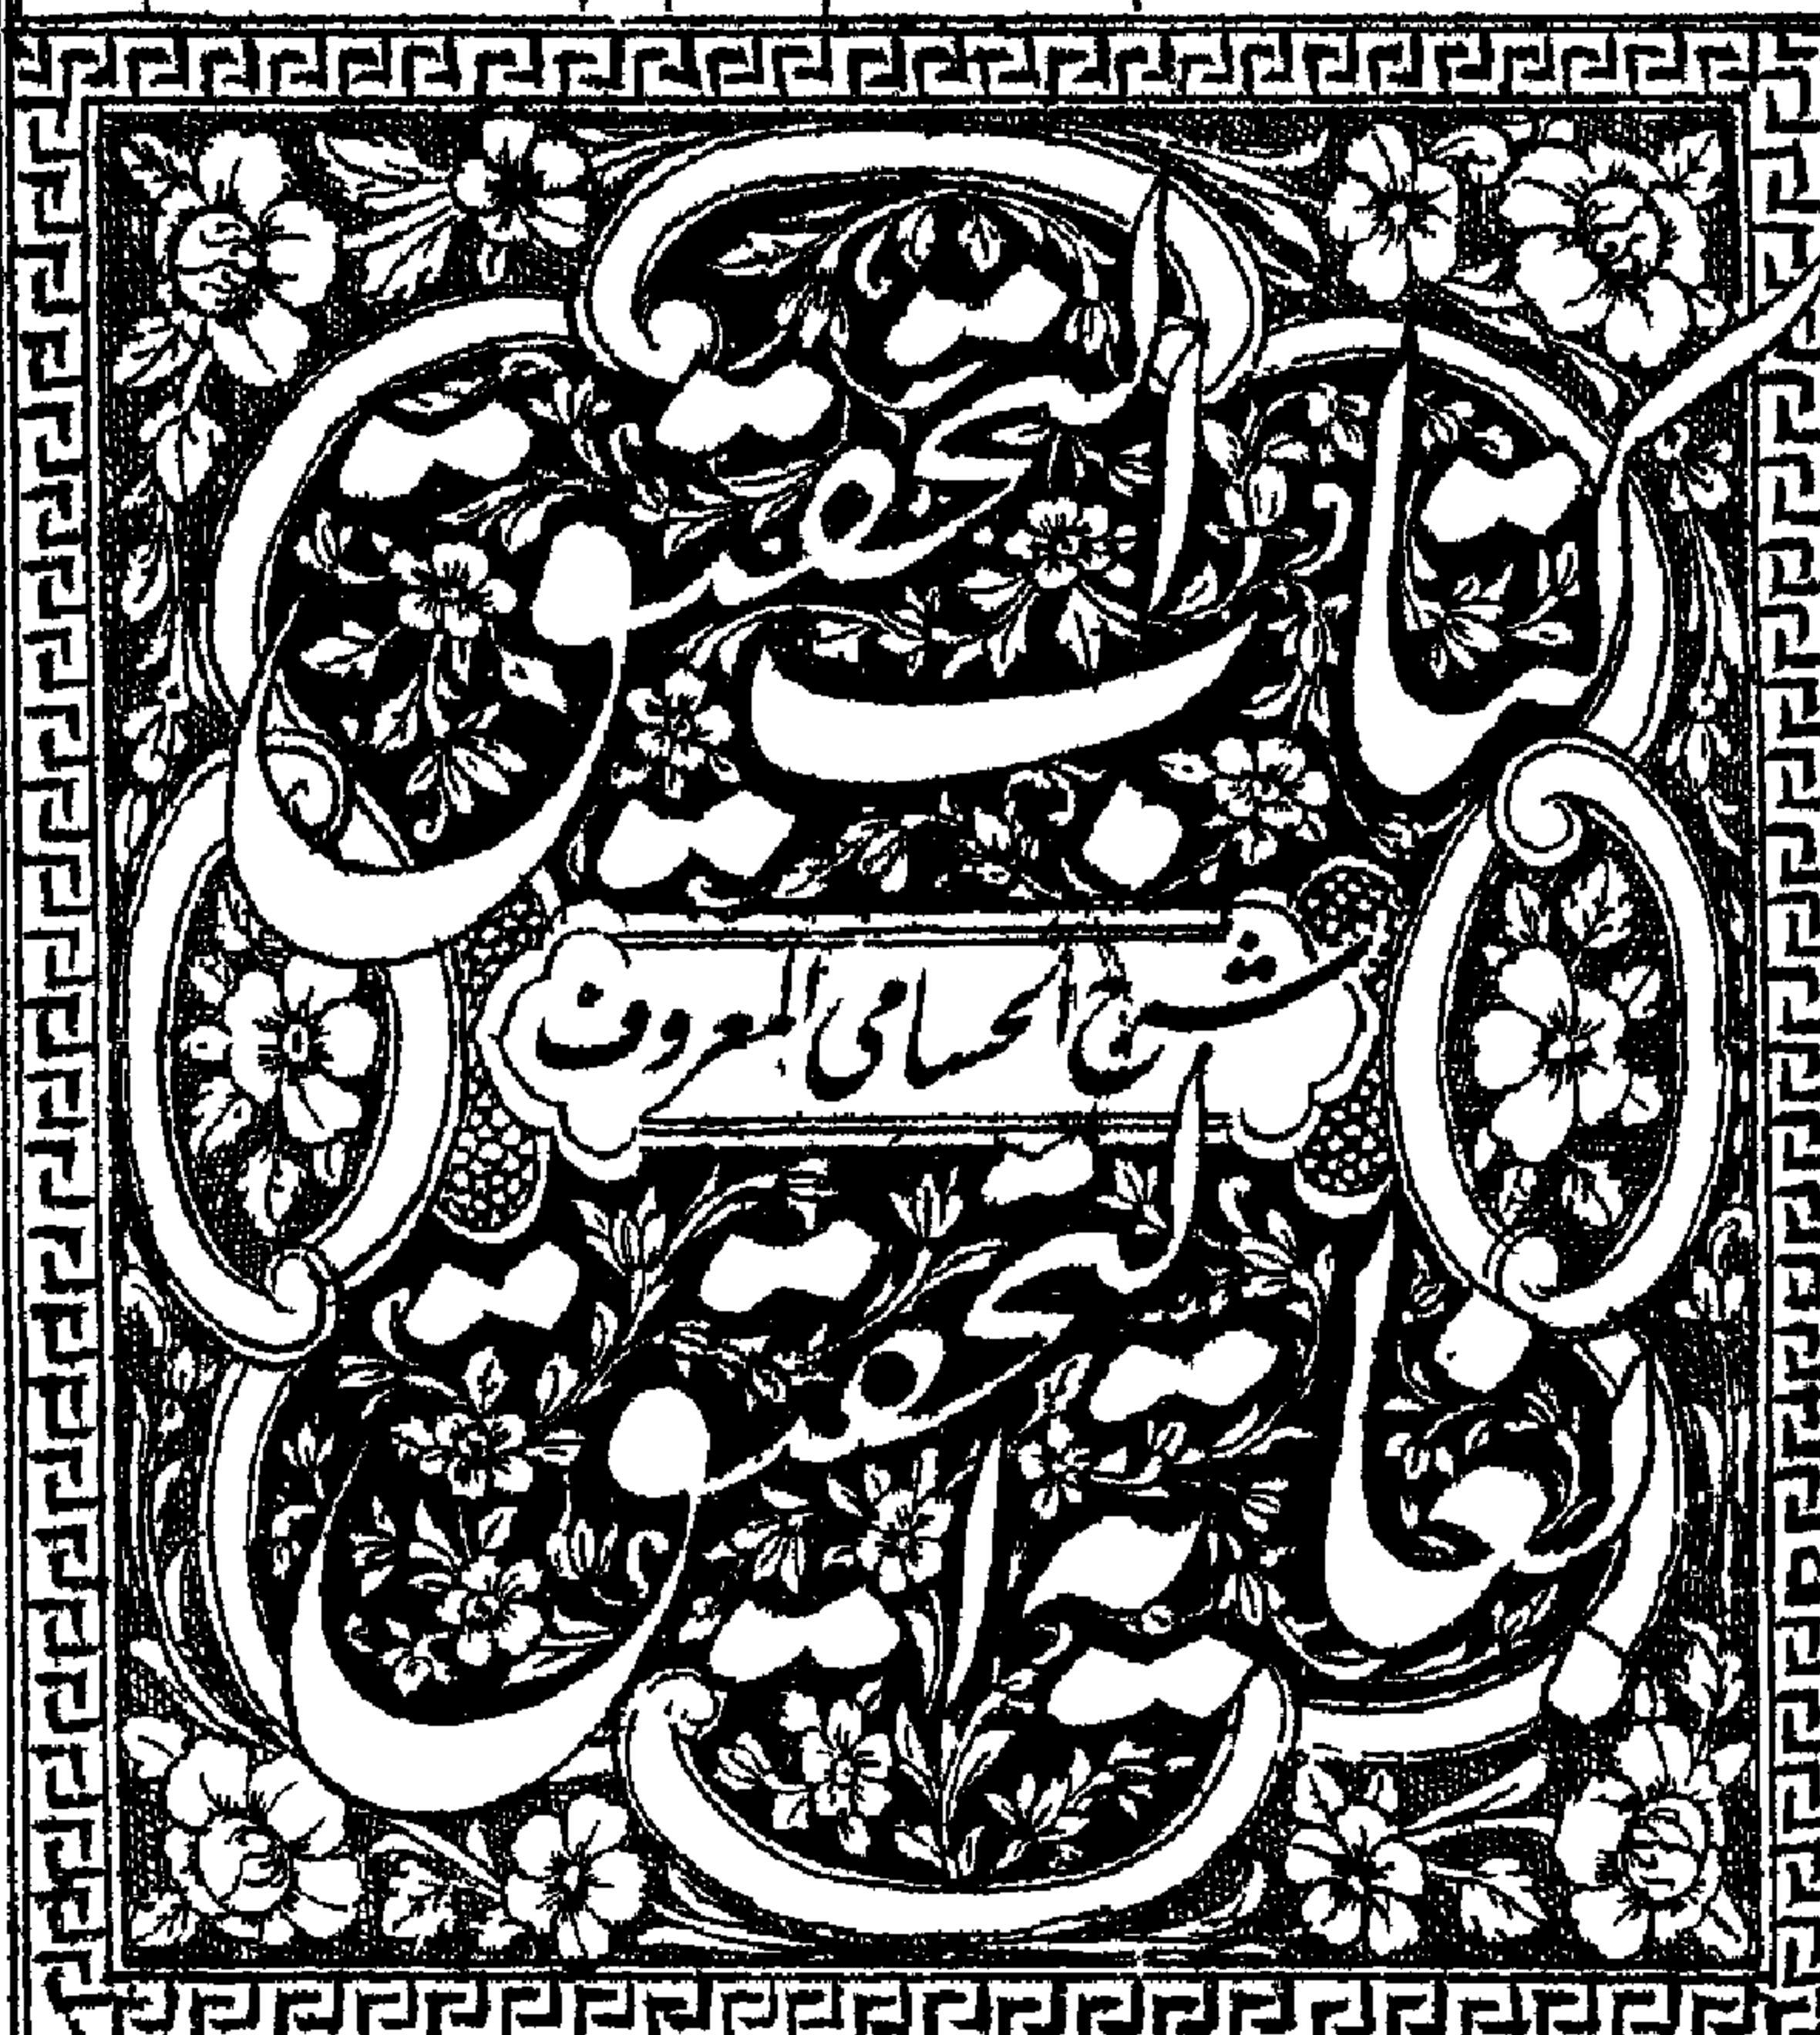 کتاب التحقیق
شرح الحسامی المعروف
بغایة التحقیق